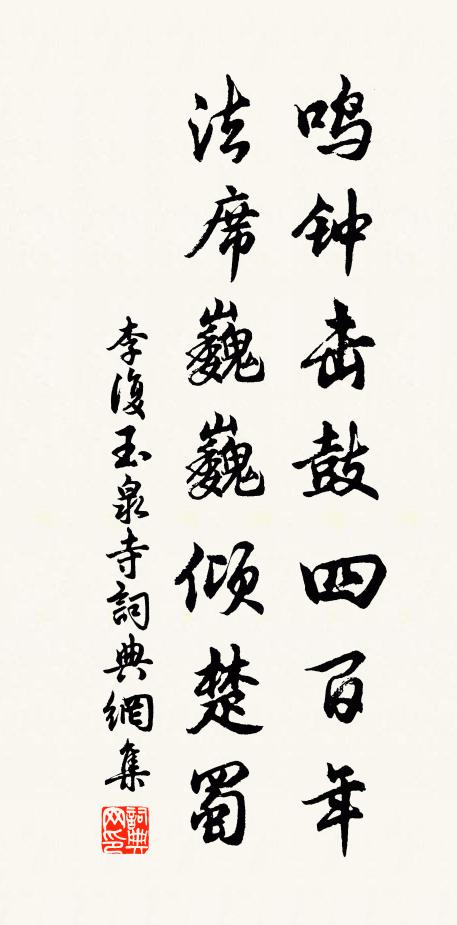 鸣钟击鼓四百年
法席巍巍倾楚蜀
李復玉泉寺詞典網集
詞典网印